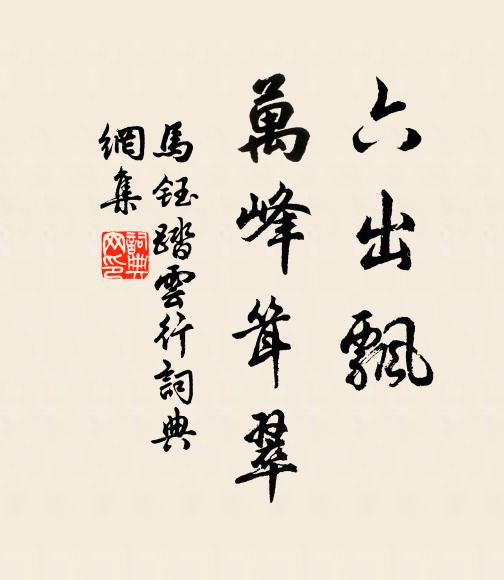 六出飄
萬峰聳翠
馬鈺踏雲行詞典
網集
詞典
网印